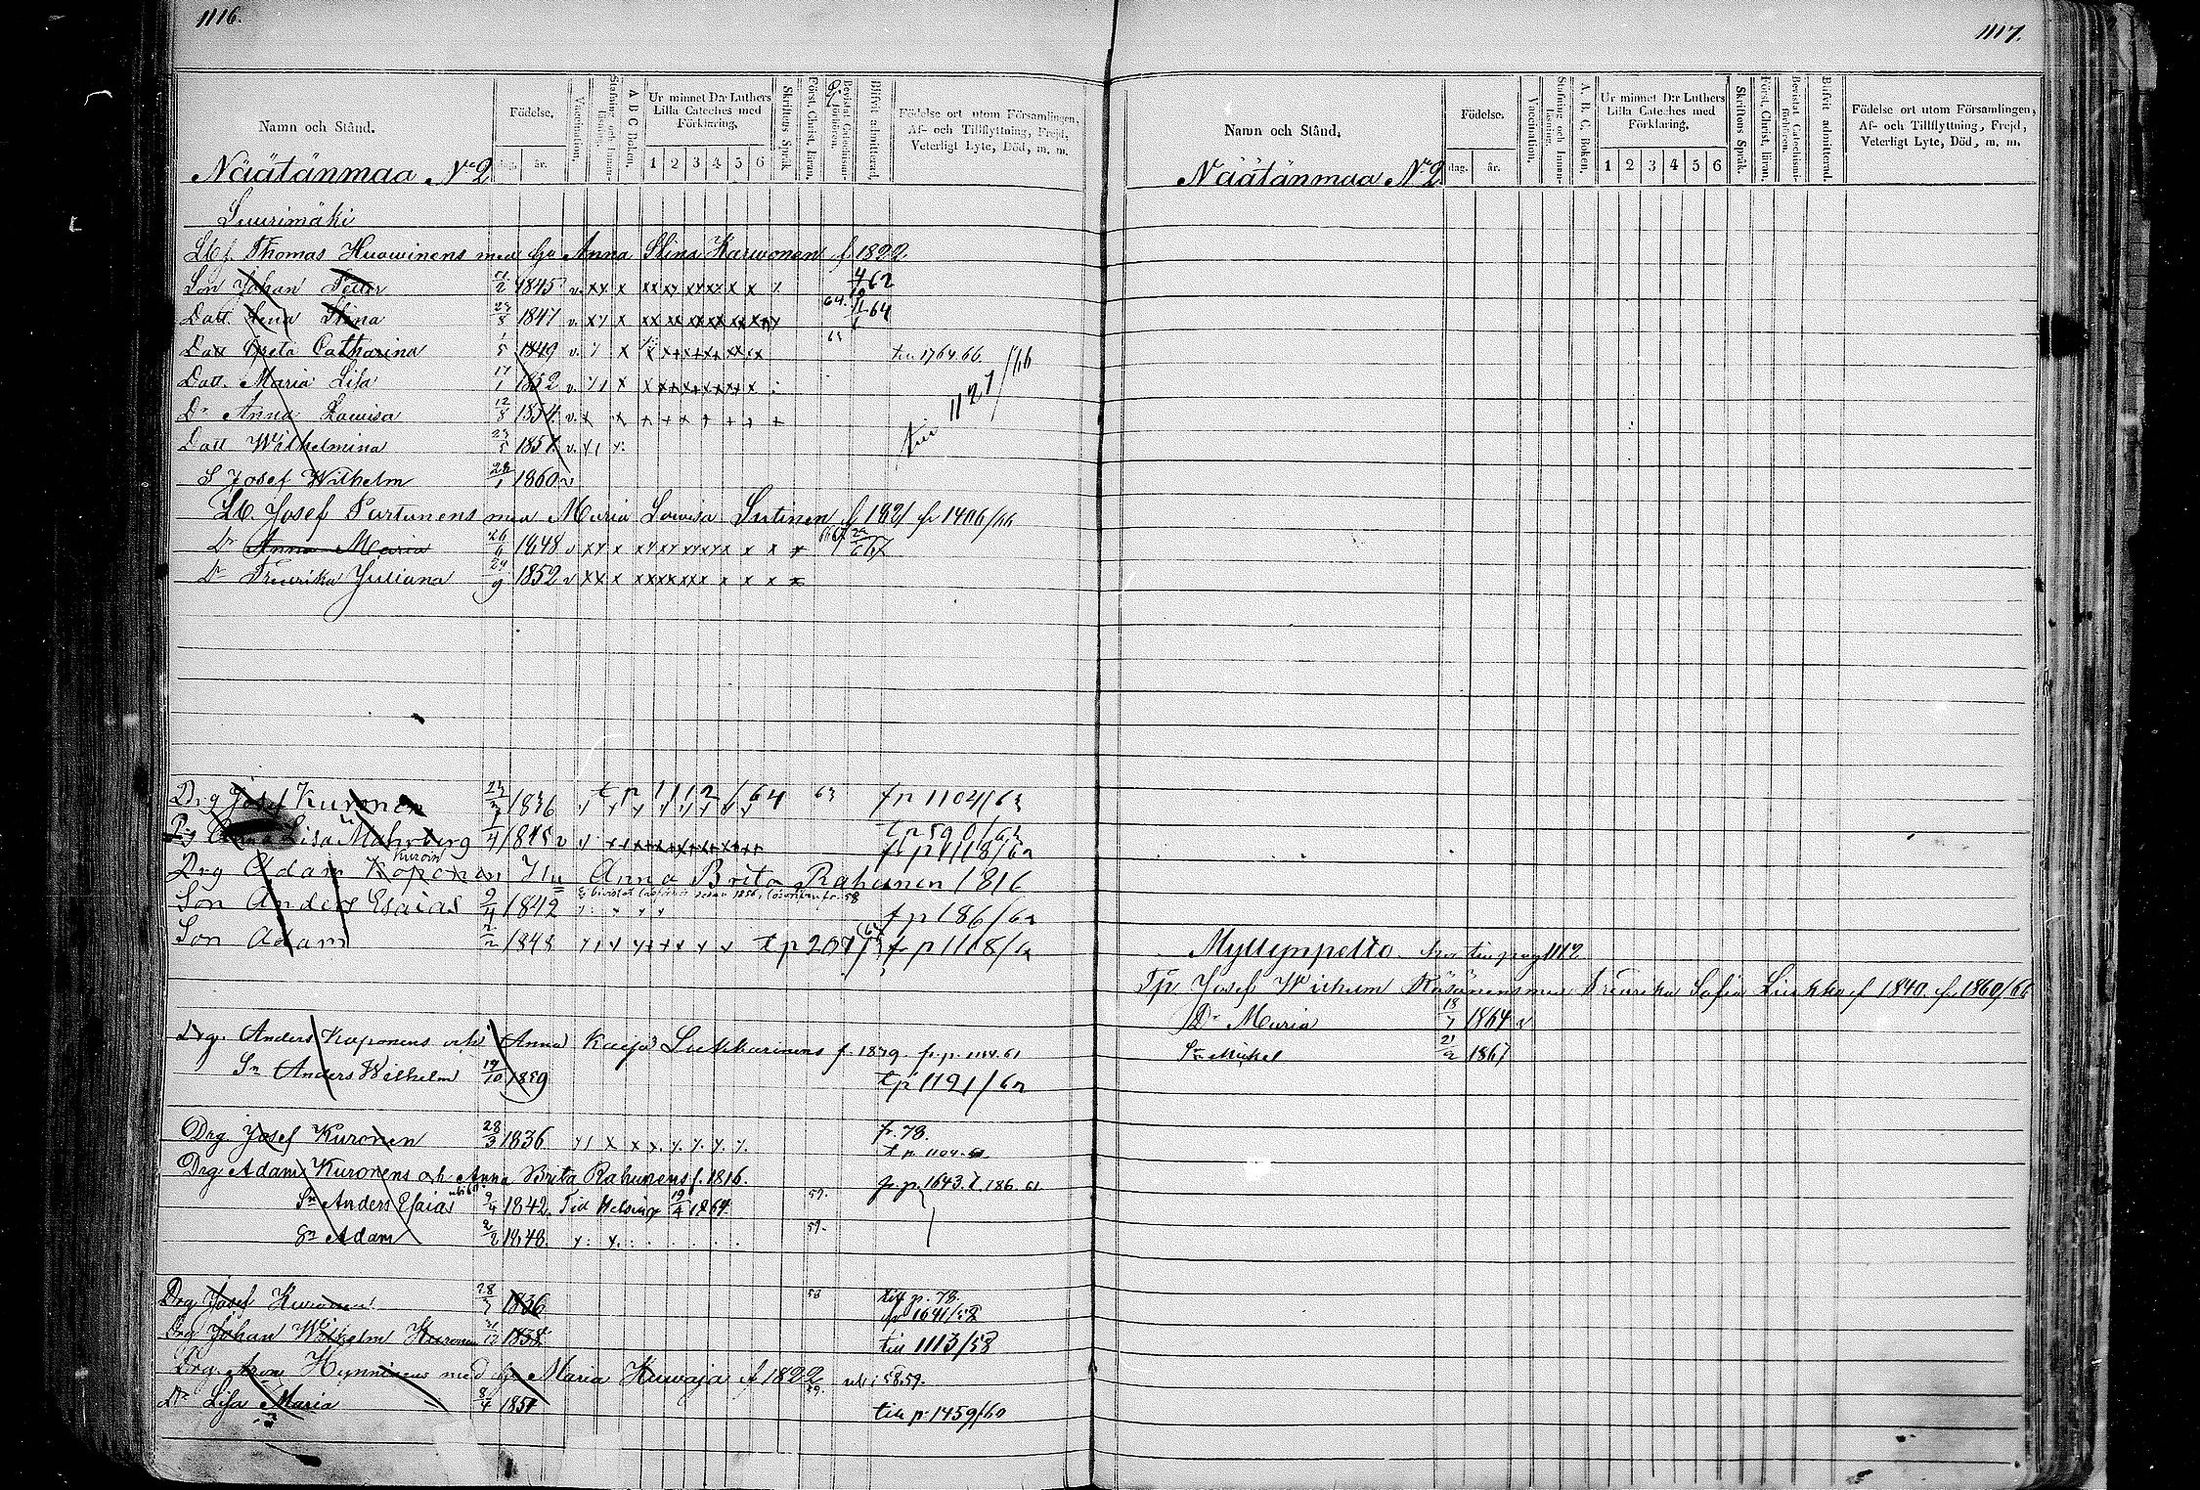 1116.
Namn och Stånd.
Födelse.
dag. år.
Vaccination.
Stafning och Innanläsning.
A B C Boken.
Ur minnet D:r Luthers Lilla Cateches med Förklaring.
1 2 3 4 5 6
Skriftens Språk
Först. Christ. läran.
Bevistat Catechismiförhören.
Blifvit admitterad.
Födelse ort utom Församlingen, Af- och Tillflyttning, Frejd, Veterligt Lyte, Död, m. m.
Näätänmaa No 2
Suurimäki
Thomas Huowinens med Anna Stina Karwonen f 1822
Son Johan Petter 1845 v. 62
Datt. Lena Stina 23/8 1847 v. 64
Datt Greta Catharina 1/5 1849 v. till 1764.66
Datt. Maria Lisa 17/1 1852 v. till 1127/66
Dr Anna Lowisa 12/8 1854 v.
Datt Wilhelmina 23/5 1857 v.
S Josef Wilhelm 1860 v
Josef Partanens med Maria Lowisa Sutinen f 1821 fr 1406/66
Dr Anna Maria 1848 v
Dr Fredrika Juliana 29/9 1852 v
Drg Josef Kuronen 1836 tp 1112/64 63 fp 1104/63
Lisa Mahrberg 1/4 1845 v tp 590/63
fr p 1118/62
Drg Adam Koponen Kuron Hu Anna Brita Rahunen 1816
Son Anders Esaias 9/4 1842 fp 186/62
Son Adam 2/2 1848 tp 207 fr p 1118/62
Drg. Anders Koponens och Anna Kaisa Lukkarinens f. 1839. fr. p. 1114.61
Sn Anders Wilhelm 19/10 1859 tp 1191/62
Drg Josef Kuronen 28/3 1836 fr. 78.
t p 1104.
Drg Adam Kuronens och Anna Brita Rahunens f. 1816. fr. p. 1643. 186. 61
Sn Anders Esaias 9/4 1842. Till Helsing 19/4 1864. 59.
Sn Adam 2/2 1848. 59.
Drg Josef Kuronen 28/3 1836 58 till p. 78.
fr 1641/58
Drg Johan Wilhelm Kuronen 31/12 1838 till 1113/58
Drg. Aron Hynninens med Maria Huwaja f 1822 58.59.
Dr Lisa Maria 8/4 1851 59. till p. 1459/60
1117.
Namn och Stånd.
Födelse.
dag. år.
Vaccination.
Stafning och Innanläsning.
A. B. C. Boken.
Ur minnet D:r Luthers Lilla Cateches med Förklaring.
1 2 3 4 5 6
Skriftens Språk.
Först. Christ. läran.
Bevistat Catechismiförhören.
Blifvit admitterad.
Födelse ort utom Församlingen, Af- och Tillflyttning, Frejd, Veterligt Lyte, Död, m. m.
Näätänmaa No 2
Myllynpelto. 1112
Josef Wilhelm Räsänens med Fredrika Sofia f 1840. fr 1860/66
Dr Maria 18/7 1864 v
Sn Mikel 21/9 1867